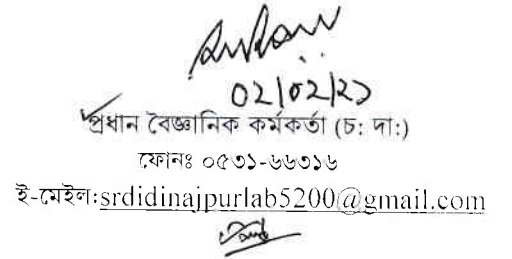 ০২/০২/২১
প্রধান বৈজ্ঞানিক কর্মকর্তা (চ: দা:)
ফোনঃ ০৫৩১-৬৬৩১৬
ই-মেইল:srdidinajpurlab5200@gmail.com